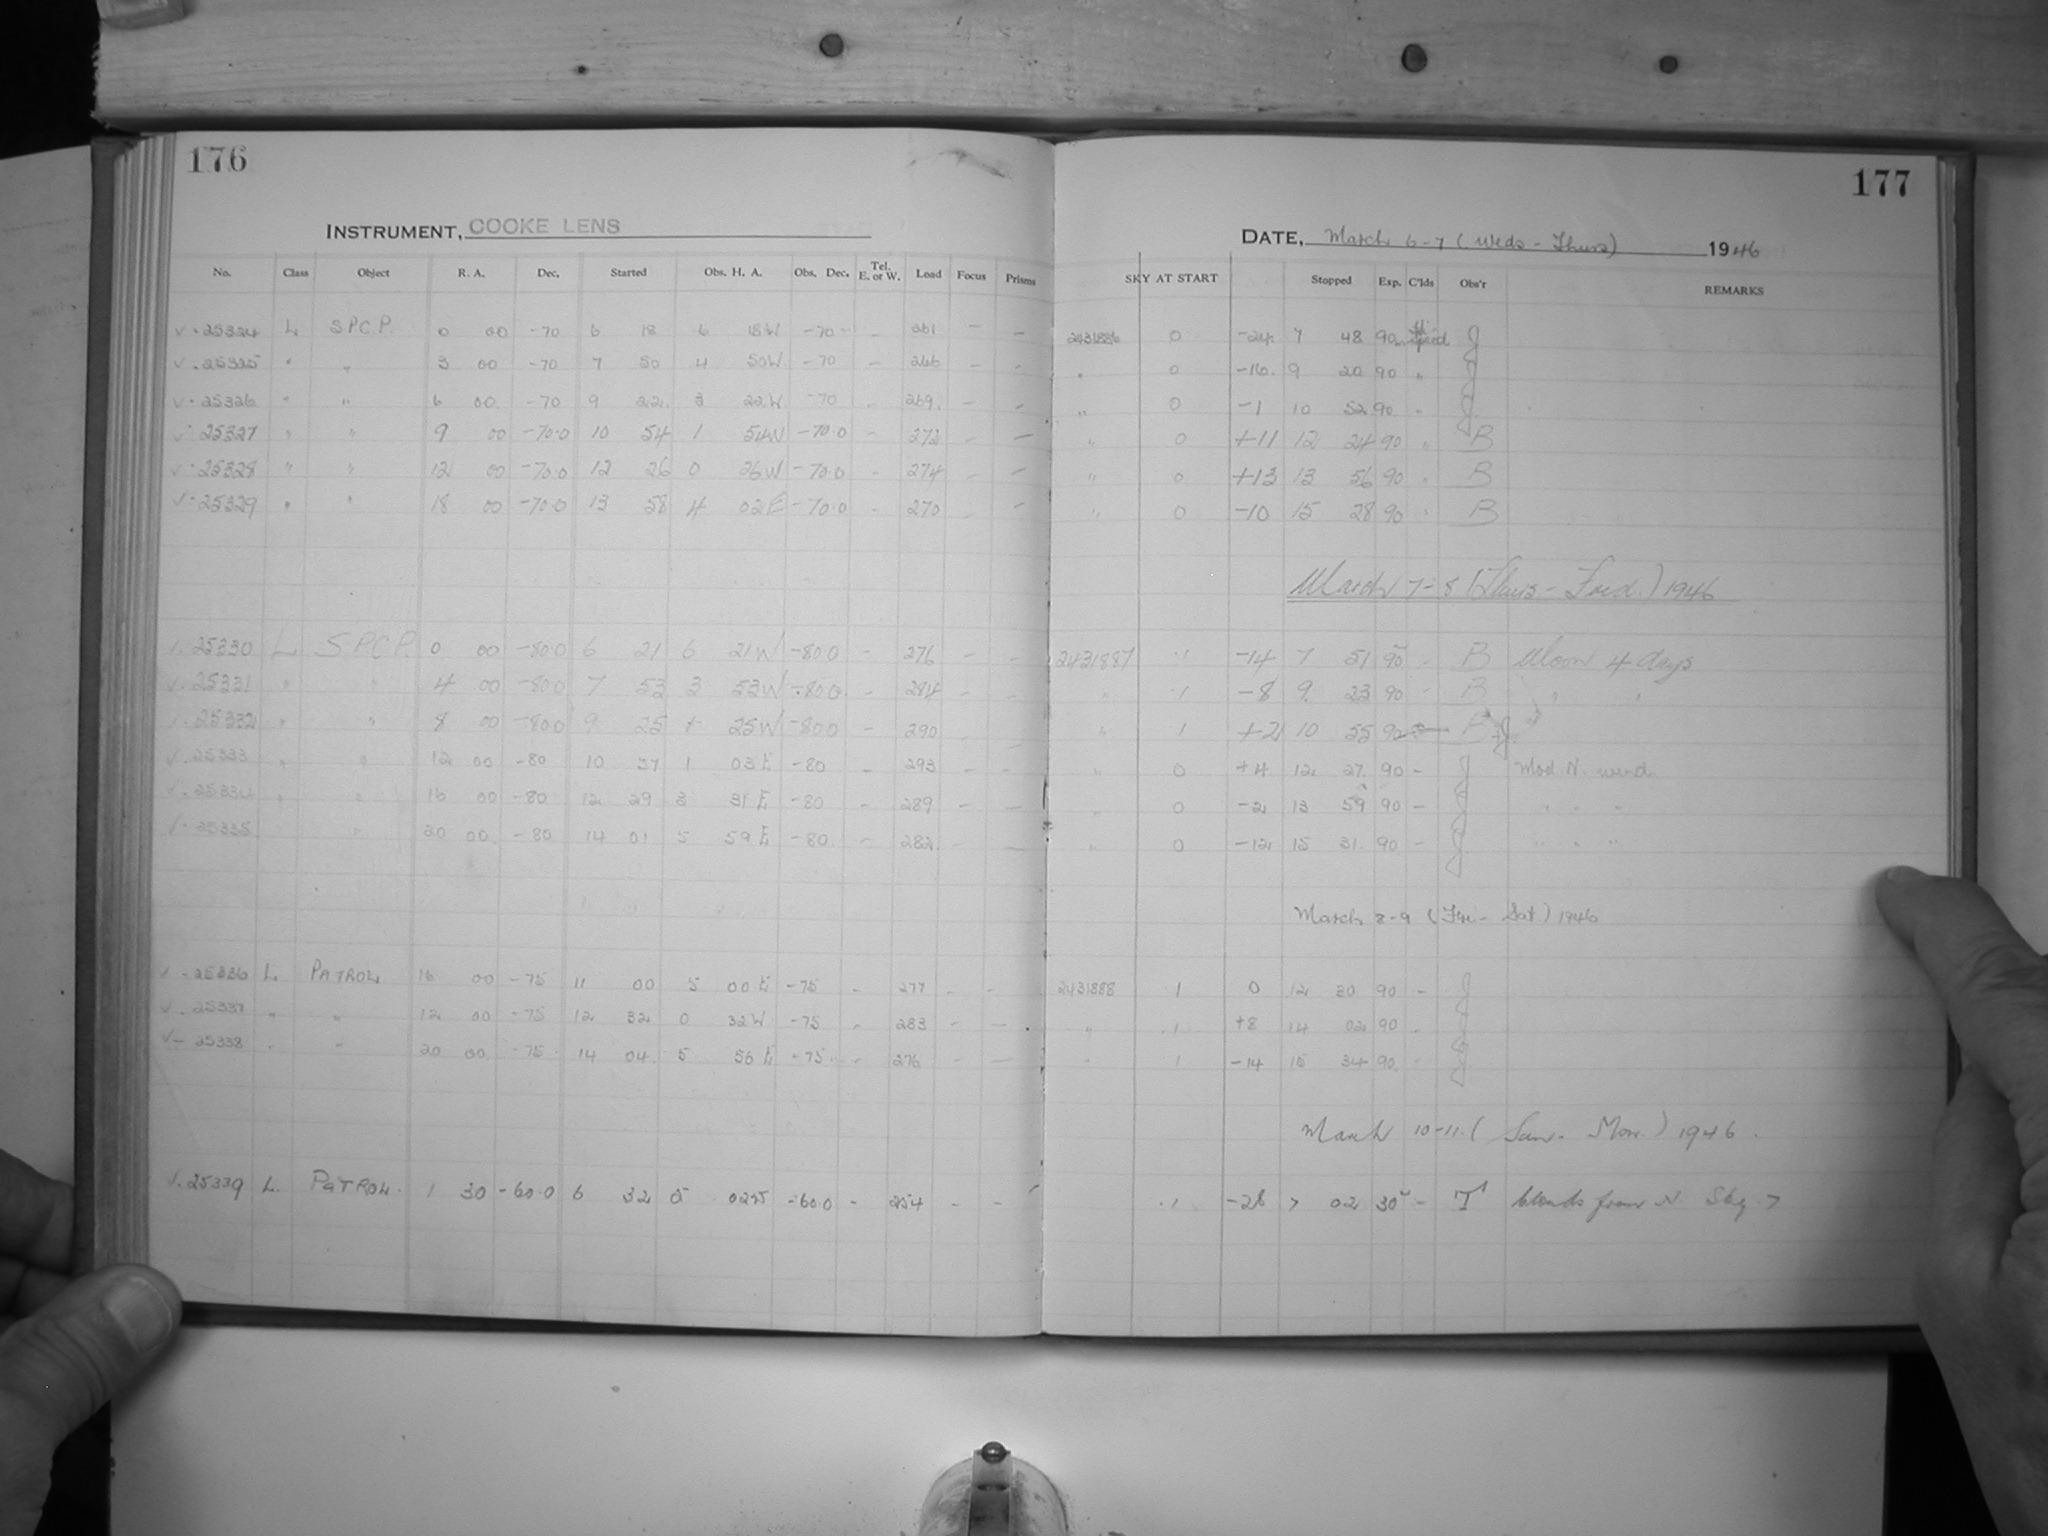 176
INSTRUMENT, COOKE LENS
No. Class Object R. A. Dec. Started Obs. H. A. Obs. Dec. Tel. E. or W. Load Focus Prisms
√ · 25324 L S.P.C.P. 0 00 -70 6 18 6 18W -70 - 261 - -
√ · 25325 " " 3 00 -70 7 50 4 50W -70 - 266 - -
√ · 25326 " " 6 00 -70 9 22 3 22W -70 - 269 - -
√ · 25327 " " 9 00 -70.0 10 54 1 54W -70.0 - 272 - -
√ · 25328 " " 12 00 -70.0 12 26 0 26W -70.0 - 274 - -
√ · 25329 " " 18 00 -70.0 13 58 4 02E -70.0 - 270 - -
√ · 25330 L S.P.C.P. 0 00 -80.0 6 21 6 21W -80.0 - 276 - -
√ · 25331 " " 4 00 -80.0 7 53 3 53W -80.0 - 284 - -
√ · 25332 " " 8 00 -80.0 9 25 1 25W -80.0 - 290 - -
√ · 25333 " " 12 00 -80 10 57 1 03E -80 - 293 - -
√ · 25334 " " 16 00 -80 12 29 3 31E -80 - 289 - -
√ · 25335 " 20 00 -80 14 01 5 59E -80 - 282 - -
√ · 25336 L PATROL 16 00 -75 11 00 5 00E -75 - 277 - -
√ · 25337 " " 12 00 -75 12 32 0 32W -75 - 283 - -
√ - 25338 " " 20 00 -75 14 04 5 56E -75 - 276 - -
√ · 25339 L. PATROL. 1 30 -60.0 6 32 5 02W -60.0 - 254 - -
177
DATE, March 6-7 (Weds - Thurs) 1946
SKY AT START Stopped Exp. C'lds Obs'r REMARKS
2431886 0 -24 7 48 90 J
" 0 -16 9 20 90 " J
" 0 -1 10 52 90 " J
" 0 +11 12 24 90 " B
" 0 +13 13 56 90 " B
" 0 -10 15 28 90 " B
March 7-8 (Thurs - Frid.) 1946
2431887 .1 -14 7 51 90 - B Moon 4 days
" .1 -8 9 23 90 - B " "
" 1 +2 10 55 90 - B J "
" 0 +4 12 27 90 - J Mod N. wind
" 0 -2 13 59 90 - J " " "
" 0 -12 15 31 90 - J " " "
March 8-9 (Fri - Sat) 1946
2431888 .1 0 12 30 90 - J
" .1 +8 14 02 90 - J
" 1 -14 15 34 90 - J
March 10-11. (Sun. - Mon.) 1946.
.1 -28 7 02 30 - T clouds from N. Sky 7